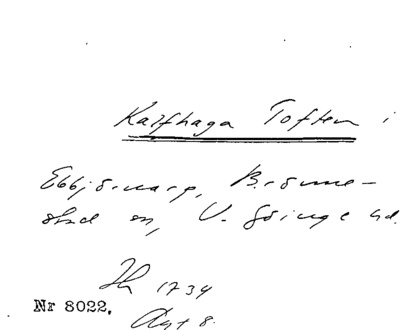 Kalfhaga Toften i
Ebbjörnarp, Brönne-
stad sn, V. Göinge hd.
Ih 1734
Akt 8.
Nr 8022.